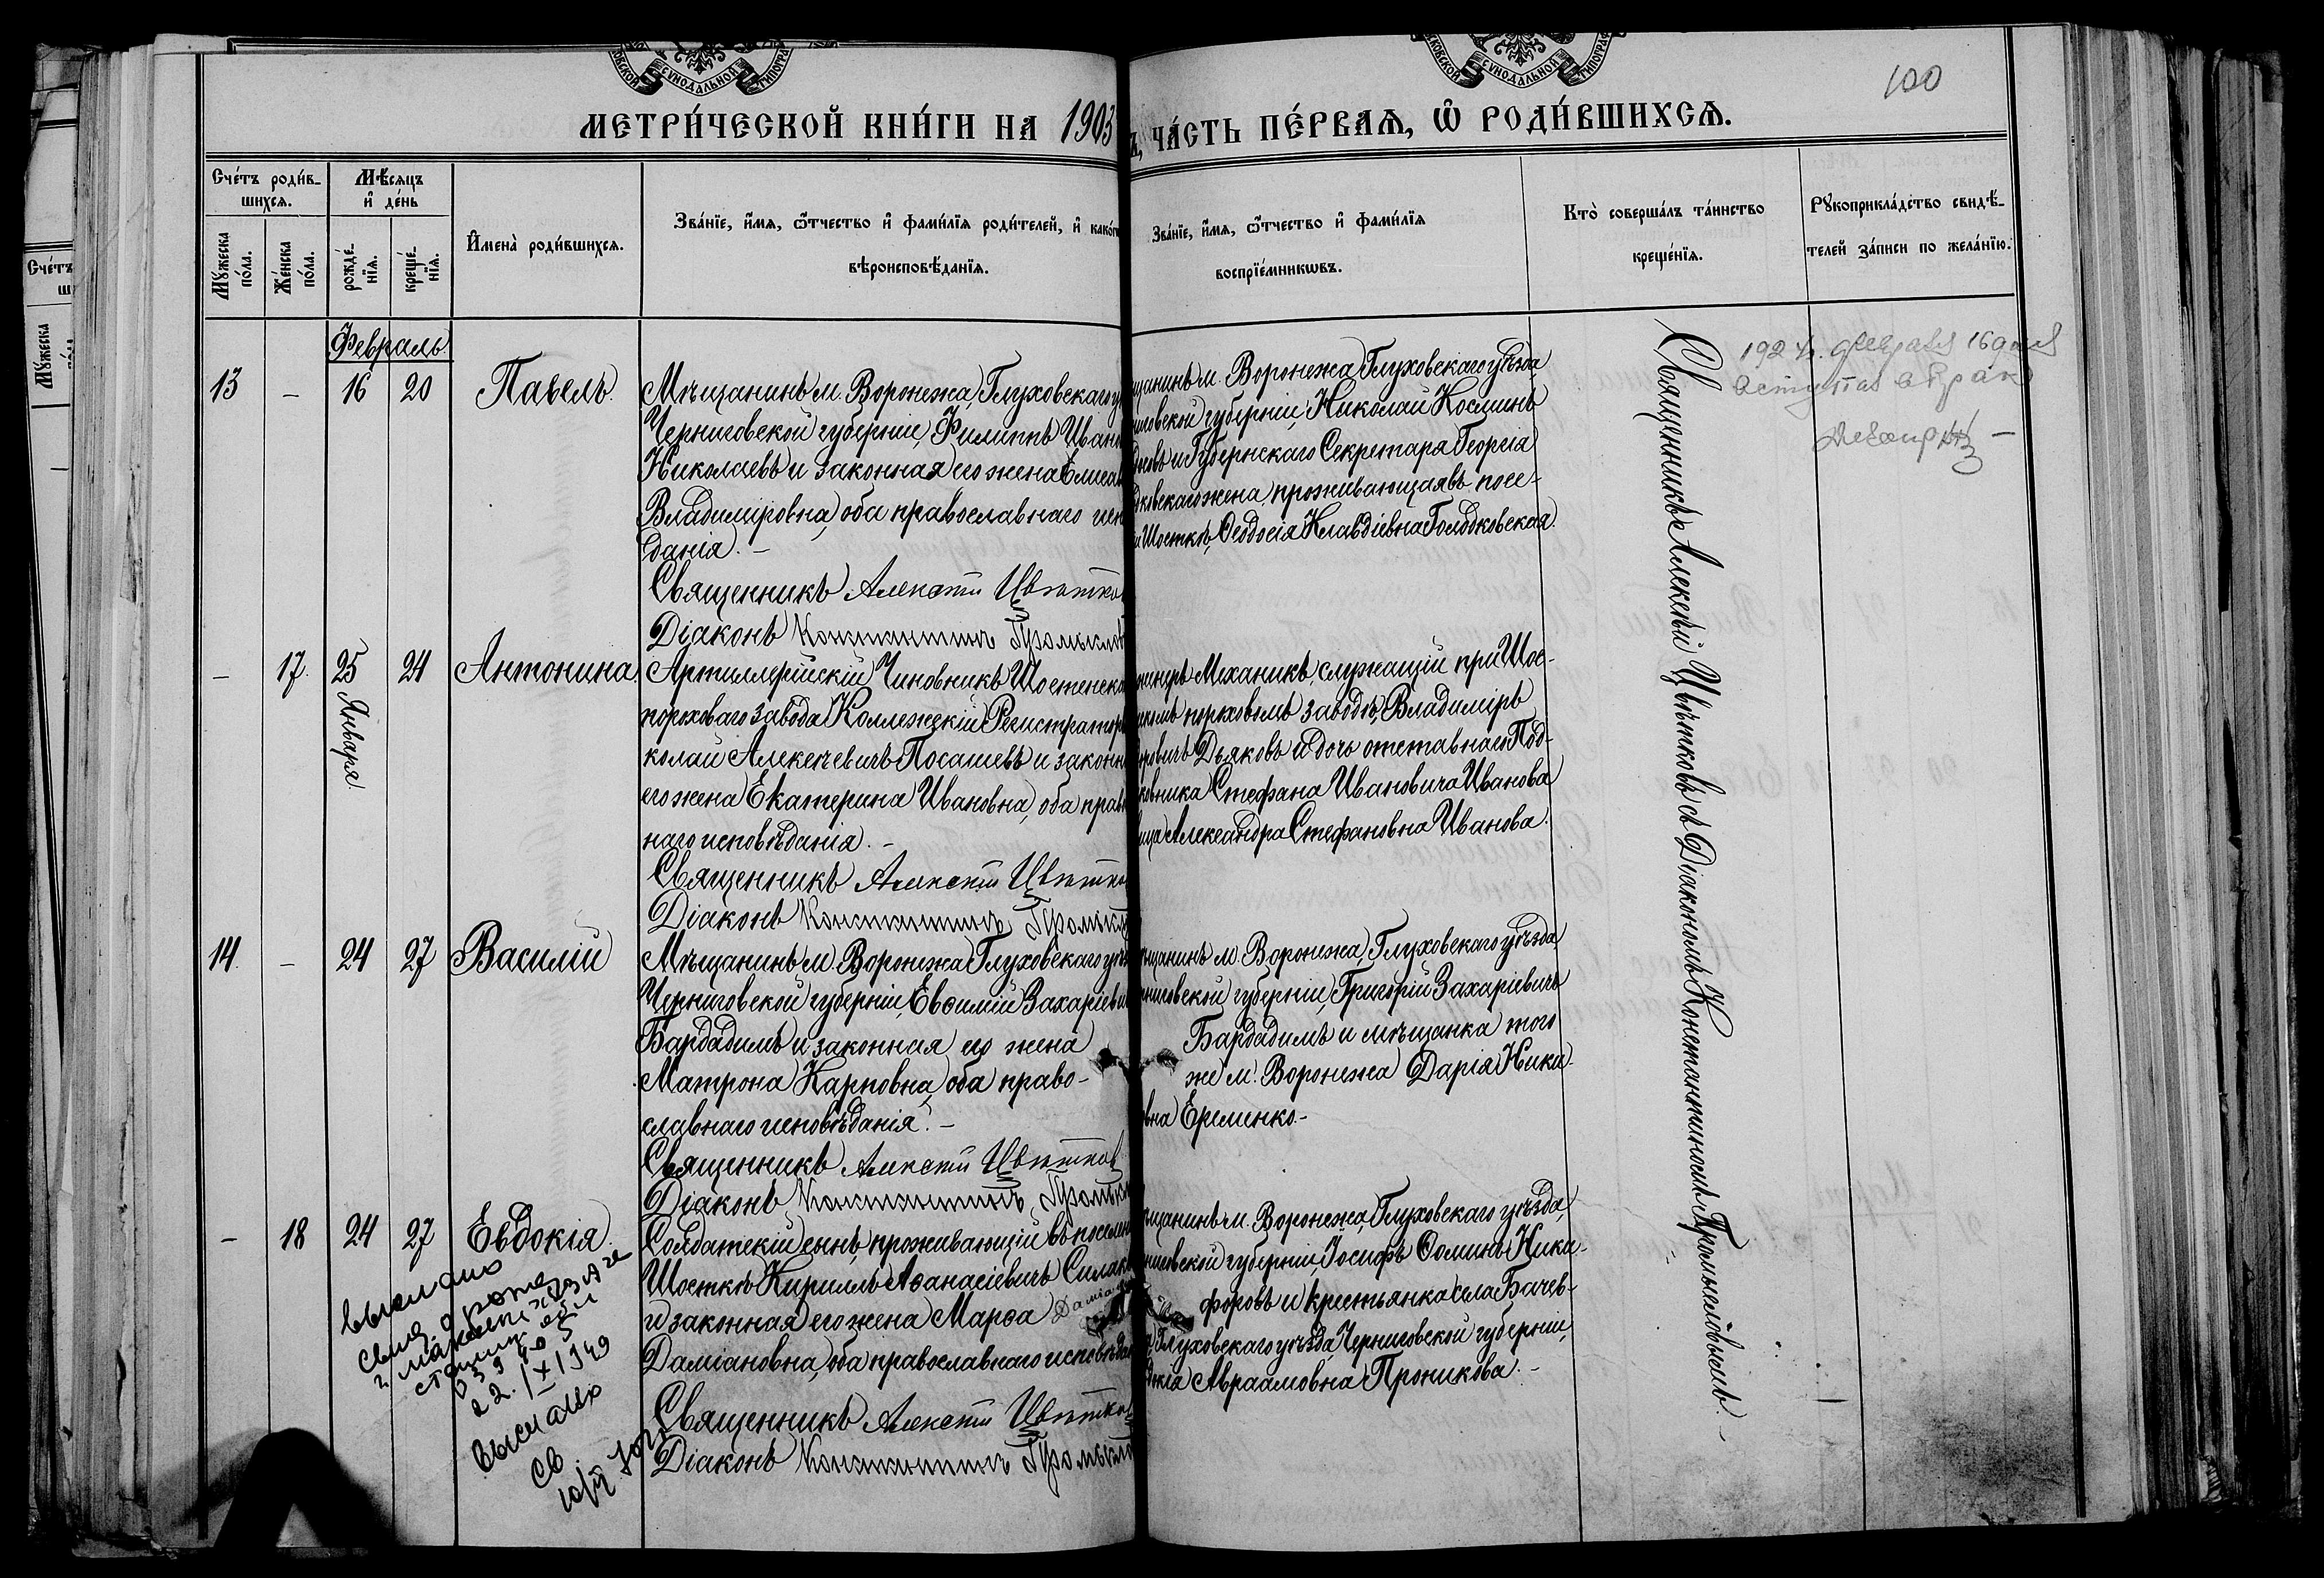 МОСКОВСКОЙ СУНОДАЛЬНОЙ ТИПОГРАФ
КОВСКОЙ СУНОДАЛЬНОЙ ТИПОГРАФ
100
МЕТРИ́ЧЕСКОЙ КНИ́ГИ НА 1903
ЧА́СТЬ ПЕ́РВАЯ, Ѿ РОДИ́ВШИХСЯ.
Сче́тъ роди́в-
шихся.
Мѣ́сяцъ
и҆ де́нь
Мꙋ́жеска
по́ла.
Же́нска
по́ла.
рожде́-
нїя.
креще́-
нїя.
И҆мена̀ роди́вшихся.
Зва́нїе, и҆́мя, ѻ҆́тчество и҆ фами́лїя роди́телей, и҆ како́гѡ
вѣроисповѣ́данїя.
Зва́нїе, и҆́мя, ѻ҆́тчество и҆ фами́лїя
воспрїе́мникѡвъ.
Кто̀ соверша́лъ та́инство
креще́нїя.
Рꙋкоприкла́дство свидѣ́-
телей за́писи по жела́нїю.
Февраль.
13 — 16 20 Павелъ.
Мѣщанинъ м. Воронежа, Глуховскаго у
Черниговской губерніи, Филиппъ Иван
Николаевъ и законная его жена Елиса
Владиміровна, оба православнаго исп
данія. —
Священникъ Алексѣй Цвѣтко
Діаконъ Константинъ Промысло
щанинъ м. Воронежа, Глуховскаго уѣзда,
иговской губерніи, Николай Косминъ
и Губернскаго Секретаря Георгія
ковскаго жена, проживающая въ посе-
Шосткѣ, Ѳеодосія Клавдіевна Голодковская.
Священникъ Алексѣй Цвѣтковъ съ Діакономъ Константиномъ Промысловымъ. —
192 16
вступил в брак
— 17. 25 24 Антонина.
Января.
Артиллерійскій Чиновникъ Шостенска
пороховаго завода Коллежскій Регистраторъ
колай Алексѣевичъ Посашевъ и законн
его жена Екатерина Ивановна, оба прав
наго исповѣданія. —
Священникъ Алексѣй Цвѣтко
Діаконъ Константинъ Промысл
женеръ Механикъ, служащій при Шос-
скомъ пороховомъ заводѣ, Владиміръ
ровичъ Дьяковъ и дочь отставнаго Под-
ковника Стефана Ивановича Иванова
ица Александра Стефановна Иванова.
14. — 24 27 Василій
Мѣщанинъ м. Воронежа, Глуховскаго уѣз
Черниговской губерніи, Евѳимій Захаріеви
Бардадимъ и законная его жена
Матрона Карповна, оба право-
славнаго исповѣданія. —
Священникъ Алексѣй Цвѣтков
Діаконъ Константинъ Промысл
щанинъ м. Воронежа, Глуховскаго уѣзда,
рниговской губерніи, Григорій Захаріевичъ
Бардадимъ и мѣщанка того
же м. Воронежа Дарія Ники-
вна Еременко. —
— 18 24 27 Евдокія.
Солдатскій сынъ, проживающій въ поселен
Шосткѣ Кириллъ Аѳанасіевичъ Силак
и законная его жена Марѳа
Даміановна, оба православнаго исповѣдан
Священникъ Алексѣй Цвѣтков
Діаконъ Константинъ Промысло
щанинъ м. Воронежа, Глуховскаго уѣзда,
ниговской губерніи, Іосифъ Ѳоминъ Ники-
форовъ и крестьянка села Бачев-
Глуховскаго уѣзда, Черниговской губерніи,
докія Авраамовна Проникова. —
выслано
22.IX 1949
выслано
св.